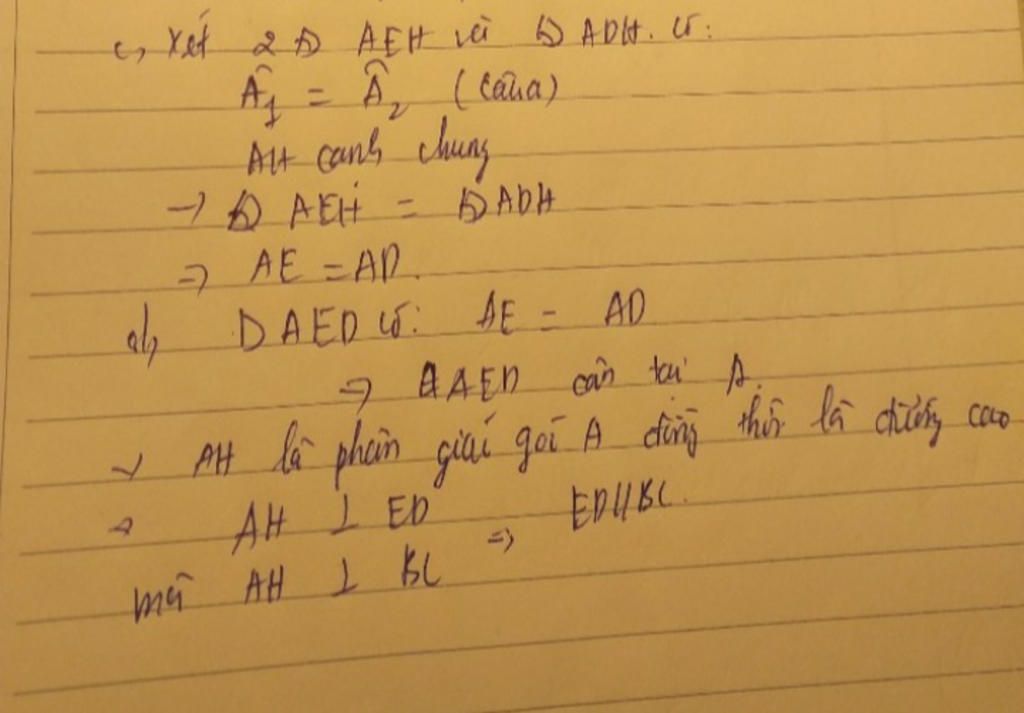 c, Xét 2 Δ AEH và Δ ADH. có:
Â₁ = Â₂ (câu a)
AH cạnh chung
→ Δ AEH = Δ ADH
⇒ AE = AD.
d, Δ AED có: AE = AD
⇒ Δ AED cân tại A.
→ AH là phân giác góc A đồng thời là đường cao
→ AH ⊥ ED ⇒ ED // BC.
mà AH ⊥ BC